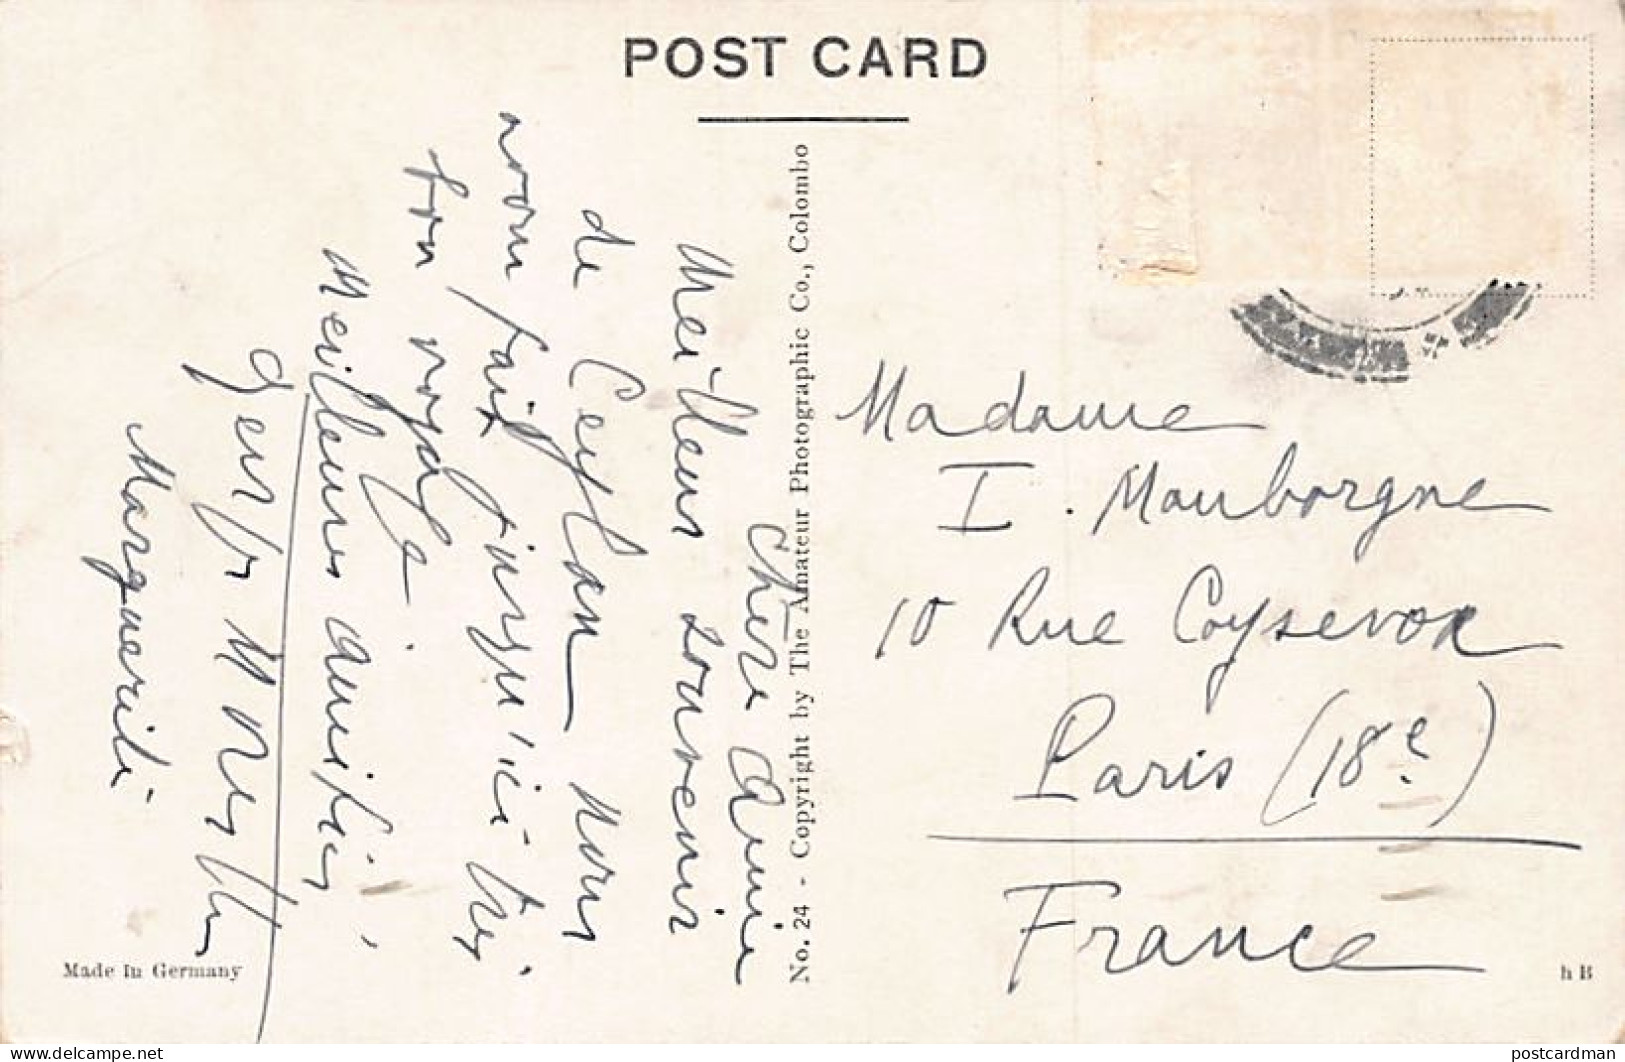 POST CARD
Chère Amie
Meilleur souvenir
de Ceylan nous
avons fait jusqu'ici très
bon voyage
Meilleures amitiés,
Marguerite
No. 24 - Copyright by The Amateur Photographic Co., Colombo
Madame
I. Mauborgne
10 Rue Coysevox
Paris (18e)
France
Made in Germany
h B
postcardman